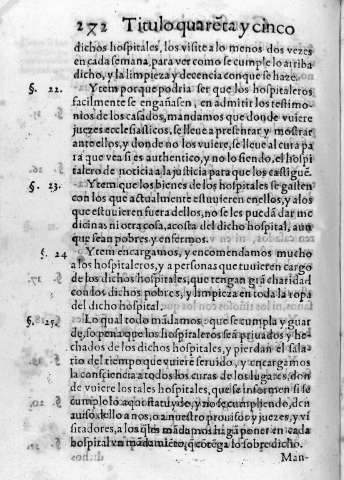 272 Titulo quarẽta y cinco
dichos hospitales, los visite a lo menos dos vezes
en cada semana, para ver como se cumple lo arriba
dicho, y la limpieza y decencia con que se haze.
§. 22. Ytem porque podria ser que los hospitaleros
facilmente se engañasen, en admitir los testimo-
nios de los casados, mandamos que donde vuiere
juezes ecclesiasticos, se lleue a presentar y mostrar
ante ellos, y donde no los vuiere, se lleue al cura pa
ra que vea si es authentico, y no lo siendo, el hospi
talero de noticia a la justicia para que los castiguẽ.
§. 23. Ytem que los bienes de los hospitales se gasten
con los que actualmente estuuieren en ellos, y a los
que estuuieren fuera dellos, no se les puedã dar me
dicinas ni otra cosa, a costa del dicho hospital, aun
que sean pobres y enfermos.
§. 24 Ytem encargamos, y encomendamos mucho
a los hospitaleros, y a personas que tuuieren cargo
de los dichos hospitales, que tengan grã charidad
con los dichos pobres, y limpieza en toda la ropa
del dicho hospital.
§. 25. Lo qual todo mãdamos que se cumpla y guar
de, so pena que los hospitaleros seã priuados y he-
chados de los dichos hospitales, y pierdan el sala-
rio del tiempo que vuiere seruido, y encargamos
la consciencia a todos los curas de los lugares, don
de vuiere los tales hospitales, que se informen si se
cumple lo aqui statuydo, y no se cumpliendo, den
auiso dello a nos, o a nuestro prouisor y juezes, y vi
sitadores, a los q̃les mãdamos hagã poner en cada
hospital vn mãdamiẽto, q̃ cõtẽga lo sobre dicho.
Man-